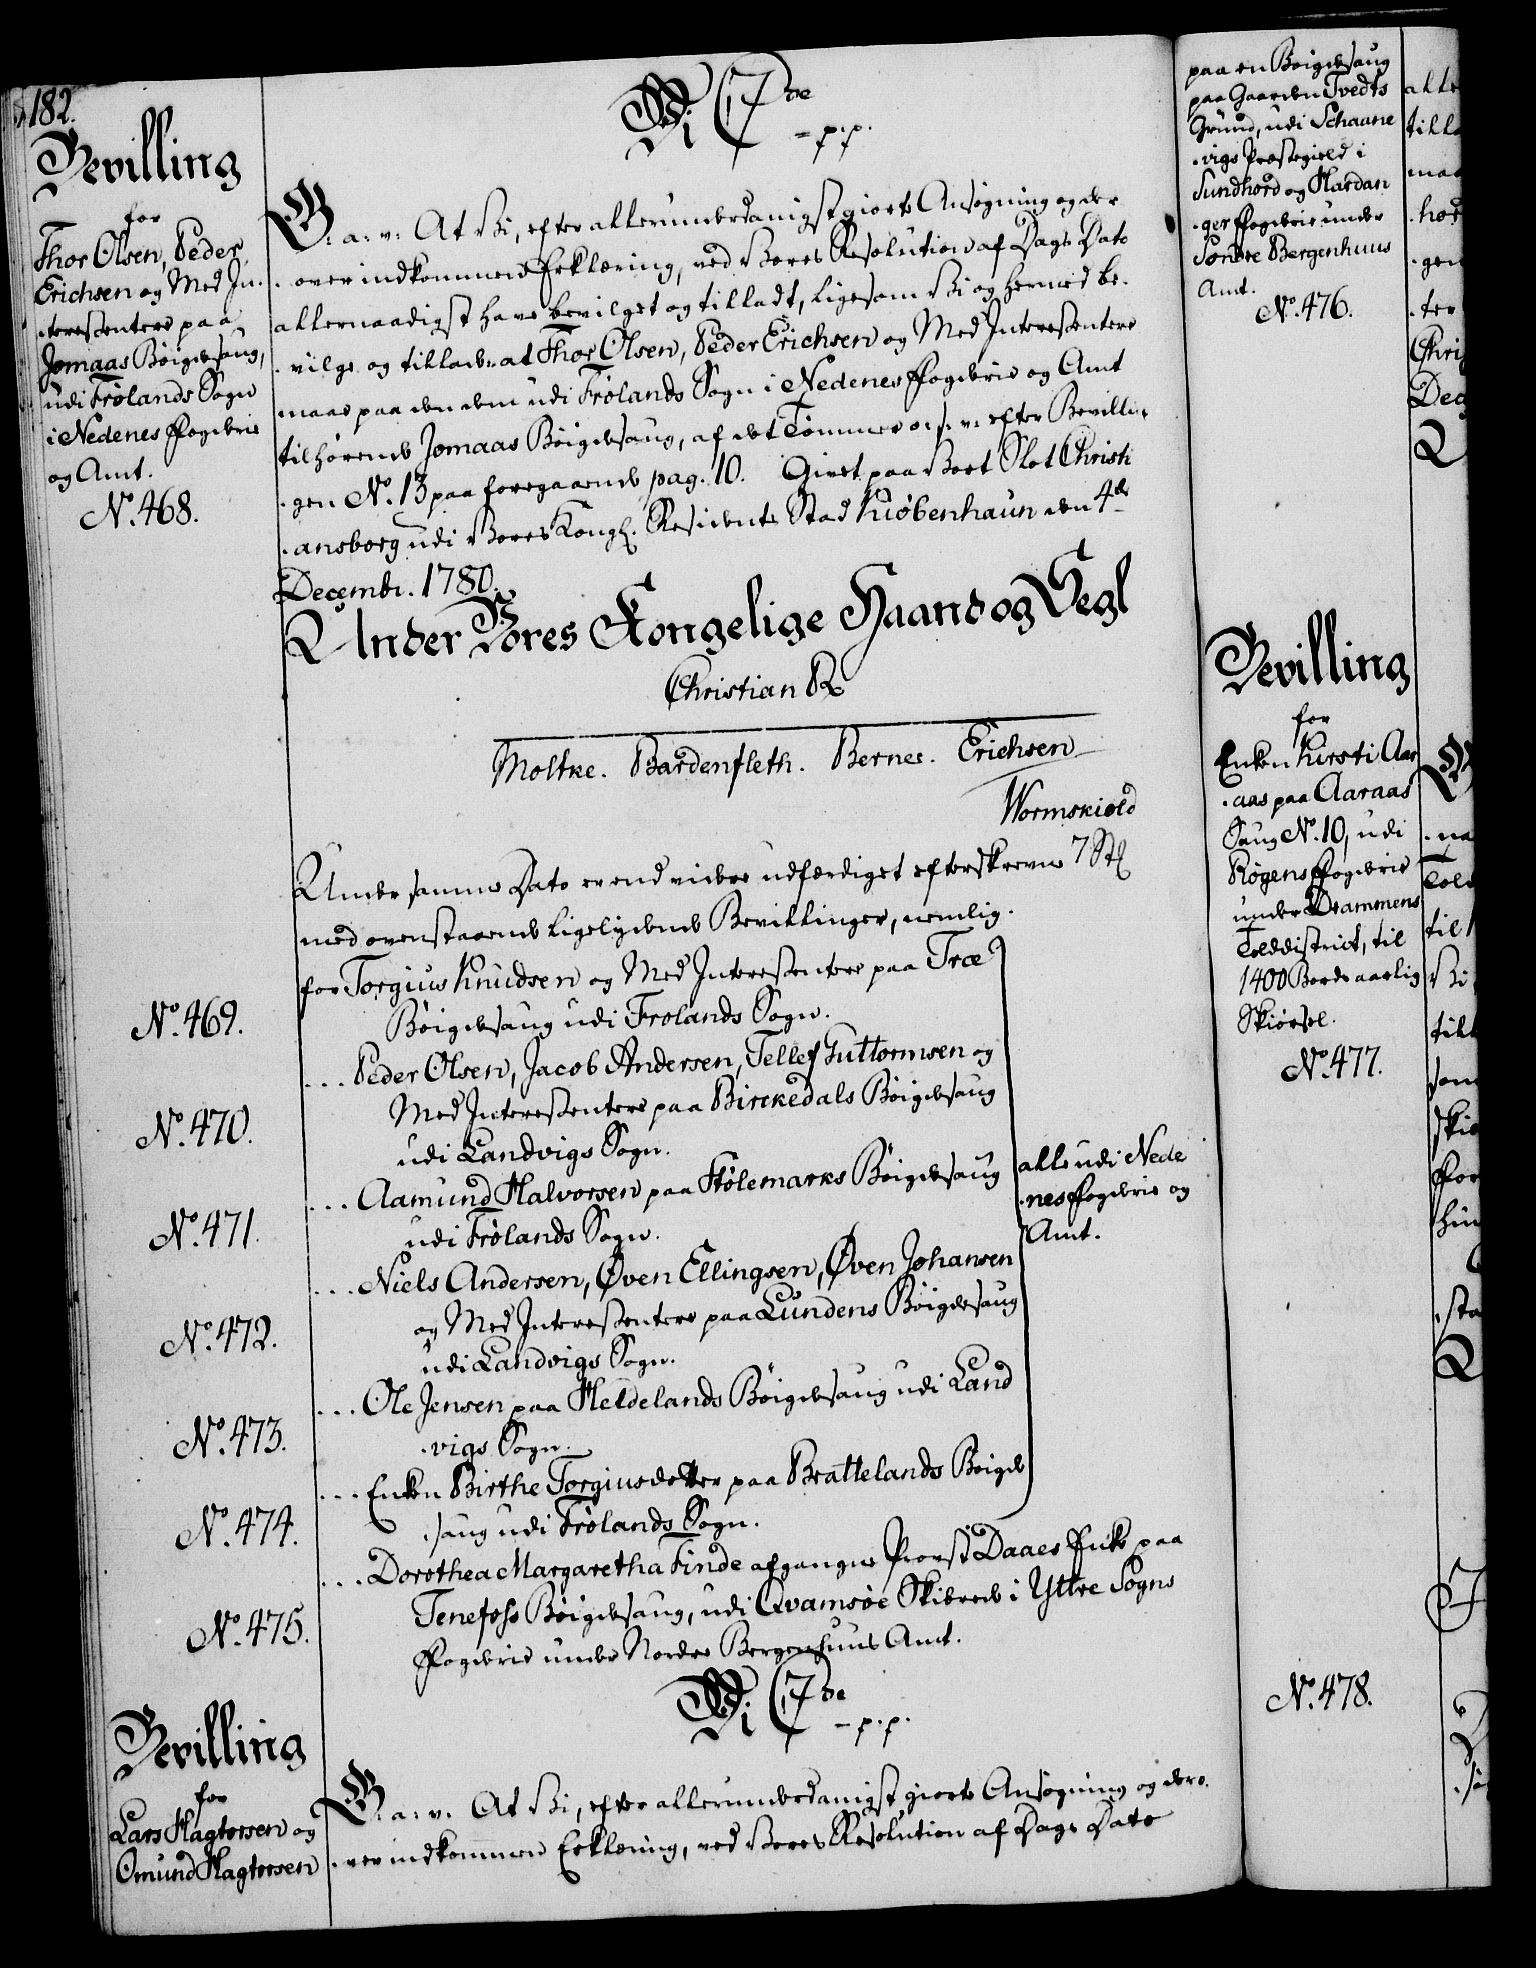 182.
Bevilling
for
Thor Olsen, Peder
Erichsen og Med In-
teressentere paa
Jomaas Bøigdesaug,
udi Frølands Sogn
i Nedenes Fogderie
og Amt.
No. 468.
Vi C 7de
= p. p.
G: a: v: At Vi, efter allerunderdanigst giorte Ansøgning og der
over indkommende Erklæring, ved Vores Resolution af Dags Dato
allernaadigst have bevilget og tilladt, ligesom Vi og hermed be-
vilge og tillade: at Thor Olsen, Peder Erichsen og Med Interessentere
maae paa den dem udi Frølands Sogn i Nedenes Fogderie og Amt
tilhørende Jomaas Bøigdesaug, af det Tømmer o: s: v: efter Bevillin-
gen No. 13 paa foregaaende pag. 10. Givet paa Vort Slot Christi
ansborg udi Vores Kongl. Residents Stad Kiøbenhaun den 4de
Decembr. 1780.
Under Vores Kongelige Haand og Segl
Christian R
Moltke. Bardenfleth. Berner. Erichsen
Wormskiold
Under samme Dato er end videre udfærdiget efterskrevne 7 St:
med ovenstaaende ligelydende Bevillinger, nemlig.
No. 469.
for Torgius Knudsen og Med Interessentere paa Træ
Bøigdesaug udi Frolands Sogn.
No. 470.
... Peder Olsen, Jacob Andersen, Tellef Guttormsen og
Med Interessentere paa Birckedals Bøigdesaug
udi Landvigs Sogn.
No. 471.
... Aamund Halvorsen paa Stølemarks Bøigdesaug
udi Frølands Sogn.
No. 472.
... Niels Andersen, Øven Ellingsen, Øven Johansen
og Med Interessentere paa Lundens Bøigdesaug
udi Landvigs Sogn.
No. 473.
... Ole Jensen paa Heldelands Bøigdesaug udi Land
vigs Sogn.
No. 474.
... Enken Birthe Torgiusdotter paa Brattelands Bøigde
saug udi Frølands Sogn.
alle udi Nede
nes Fogderie og
Amt.
No. 475.
... Dorothea Margaretha Finde afgangne Provst Daaes Enke paa
Tenefoss Bøigdesaug, udi Qvamsøe Skibrede i Yttre Sogns
Fogderie under Nordre Bergenhuus Amt.
Bevilling
for
Lars Hagtorsen og
Omund Hagtorsen
Vi C 7de
= p. p.
G: a: v: At Vi, efter allerunderdanigst giorte Ansøgning og dero-
ver indkommen Erklæring, ved Vores Resolution af Dags Dato
paa en Bøigdesaug
paa Gaarden Tvedts
Grund, udi Schaane
vigs Præstegield i
Sundhord og Hardan
ger Fogderie under
Søndre Bergenhuus
Amt.
No. 476.
Bevilling
for
Enken Kirsti Aar
aas paa Aaraas
Saug No. 10, udi
Røgens Fogderie
under Drammens
Tolddistrict, til
1400 Bords aarlig
Skiørsel.
No. 477.
No. 478.